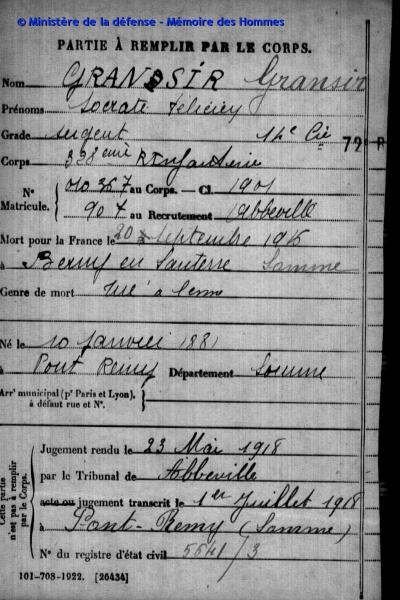 © Ministère de la défense - Mémoire des Hommes
PARTIE À REMPLIR PAR LE CORPS.
Nom GRANDSIR Gransir
Prénoms Socrate
Grade sergent 14e Cie 72 P
Corps 328eme R Infanterie
N° Matricule. { 010367 au Corps. — Cl. 1901
907 au Recrutement Abbeville
Mort pour la France le 20 Septembre 1916
à Berny en Santerre Somme
Genre de mort Tué à l'enn
Né le 10 Janvier 1881
à Pont Remy Département Somme
Arrt municipal (pr Paris et Lyon), à défaut rue et N°. }
Cette partie n'est pas à remplir par le Corps.
Jugement rendu le 23 Mai 1918
par le Tribunal de Abbeville
acte ou jugement transcrit le 1er Juillet 1918
à Pont-Remy (Somme)
N° du registre d'état civil 5541/3
101-708-1922. [26434]